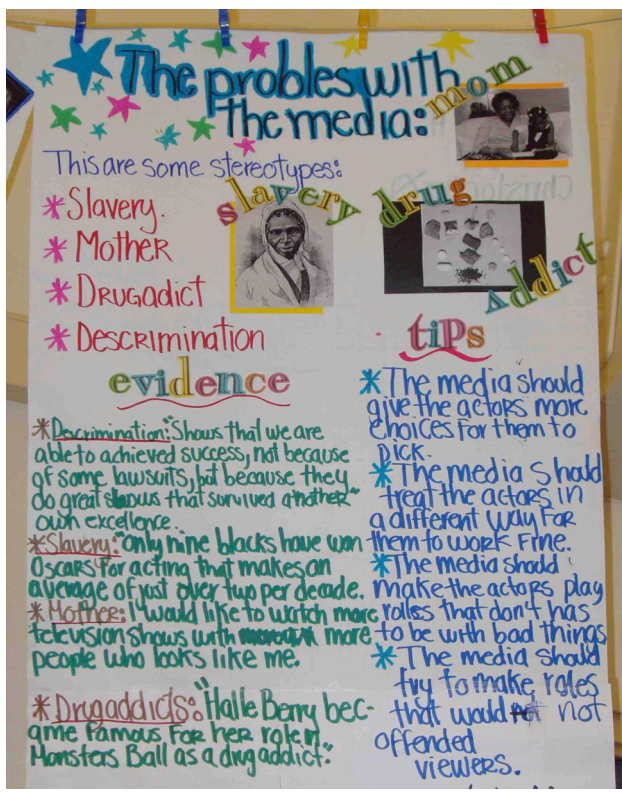 The probles with
the media:
mom
This are some stereotypes:
* Slavery.
* Mother
* Drugadict
* Descrimination
slavery
drug
Addict
evidence
* Descrimination: "Shows that we are
able to achieved success, not because
of some lawsuits, but because they
do great shows that survived another"
own excellence.
* Slavery: "only nine blacks have won
Oscars for acting that makes an
average of just over two per decade.
* Mother: I would like to watch more
television shows with more
people who looks like me.
* Drugaddicts: "Halle Berry bec-
ame famous for her role in
Monsters Ball as a drug addict."
tips
* The media should
give the actors more
choices for them to
pick.
* The media should
treat the actors in
a different way for
them to work fine.
* The media should
make the actors play
roles that don't has
to be with bad things
* The media should
try to make roles
that would not
offended
viewers.